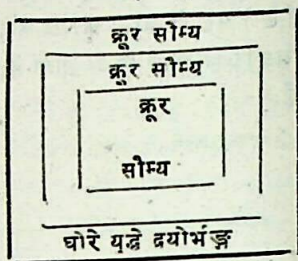 क्रूर सौम्य
क्रूर सौम्य
क्रूर
सौम्य
घोरे युद्धे द्वयोर्भङ्ग